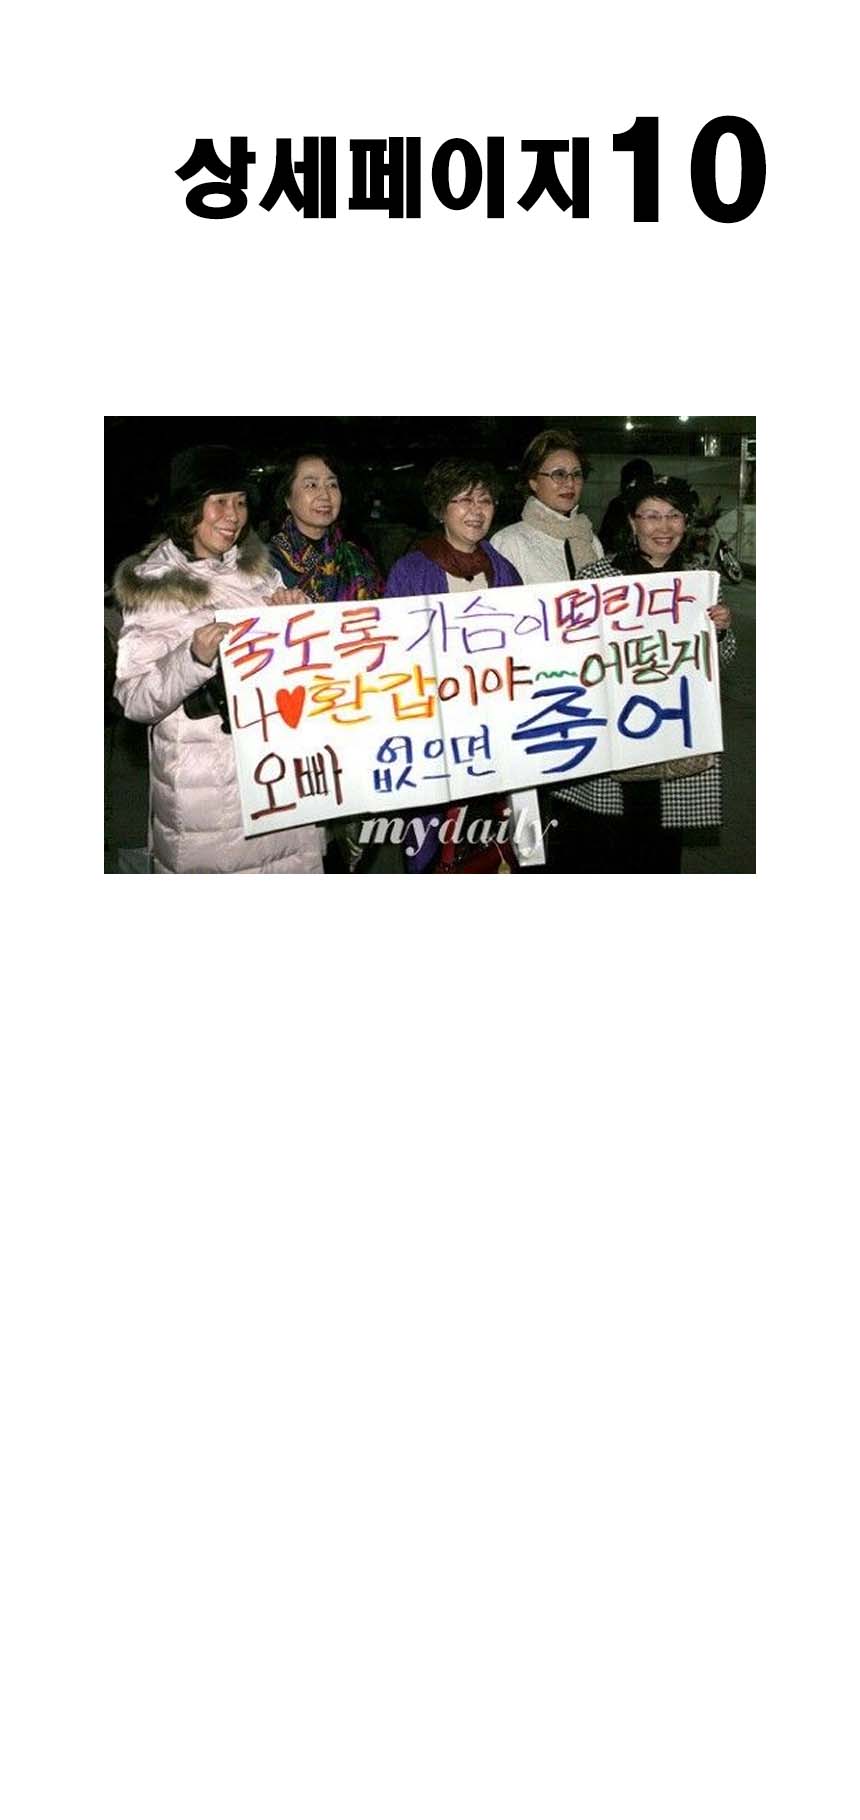 상세페이지10
죽도록 가슴이 떨린다
나♥환갑이야~어떻게
오빠 없으면 죽어
mydaily